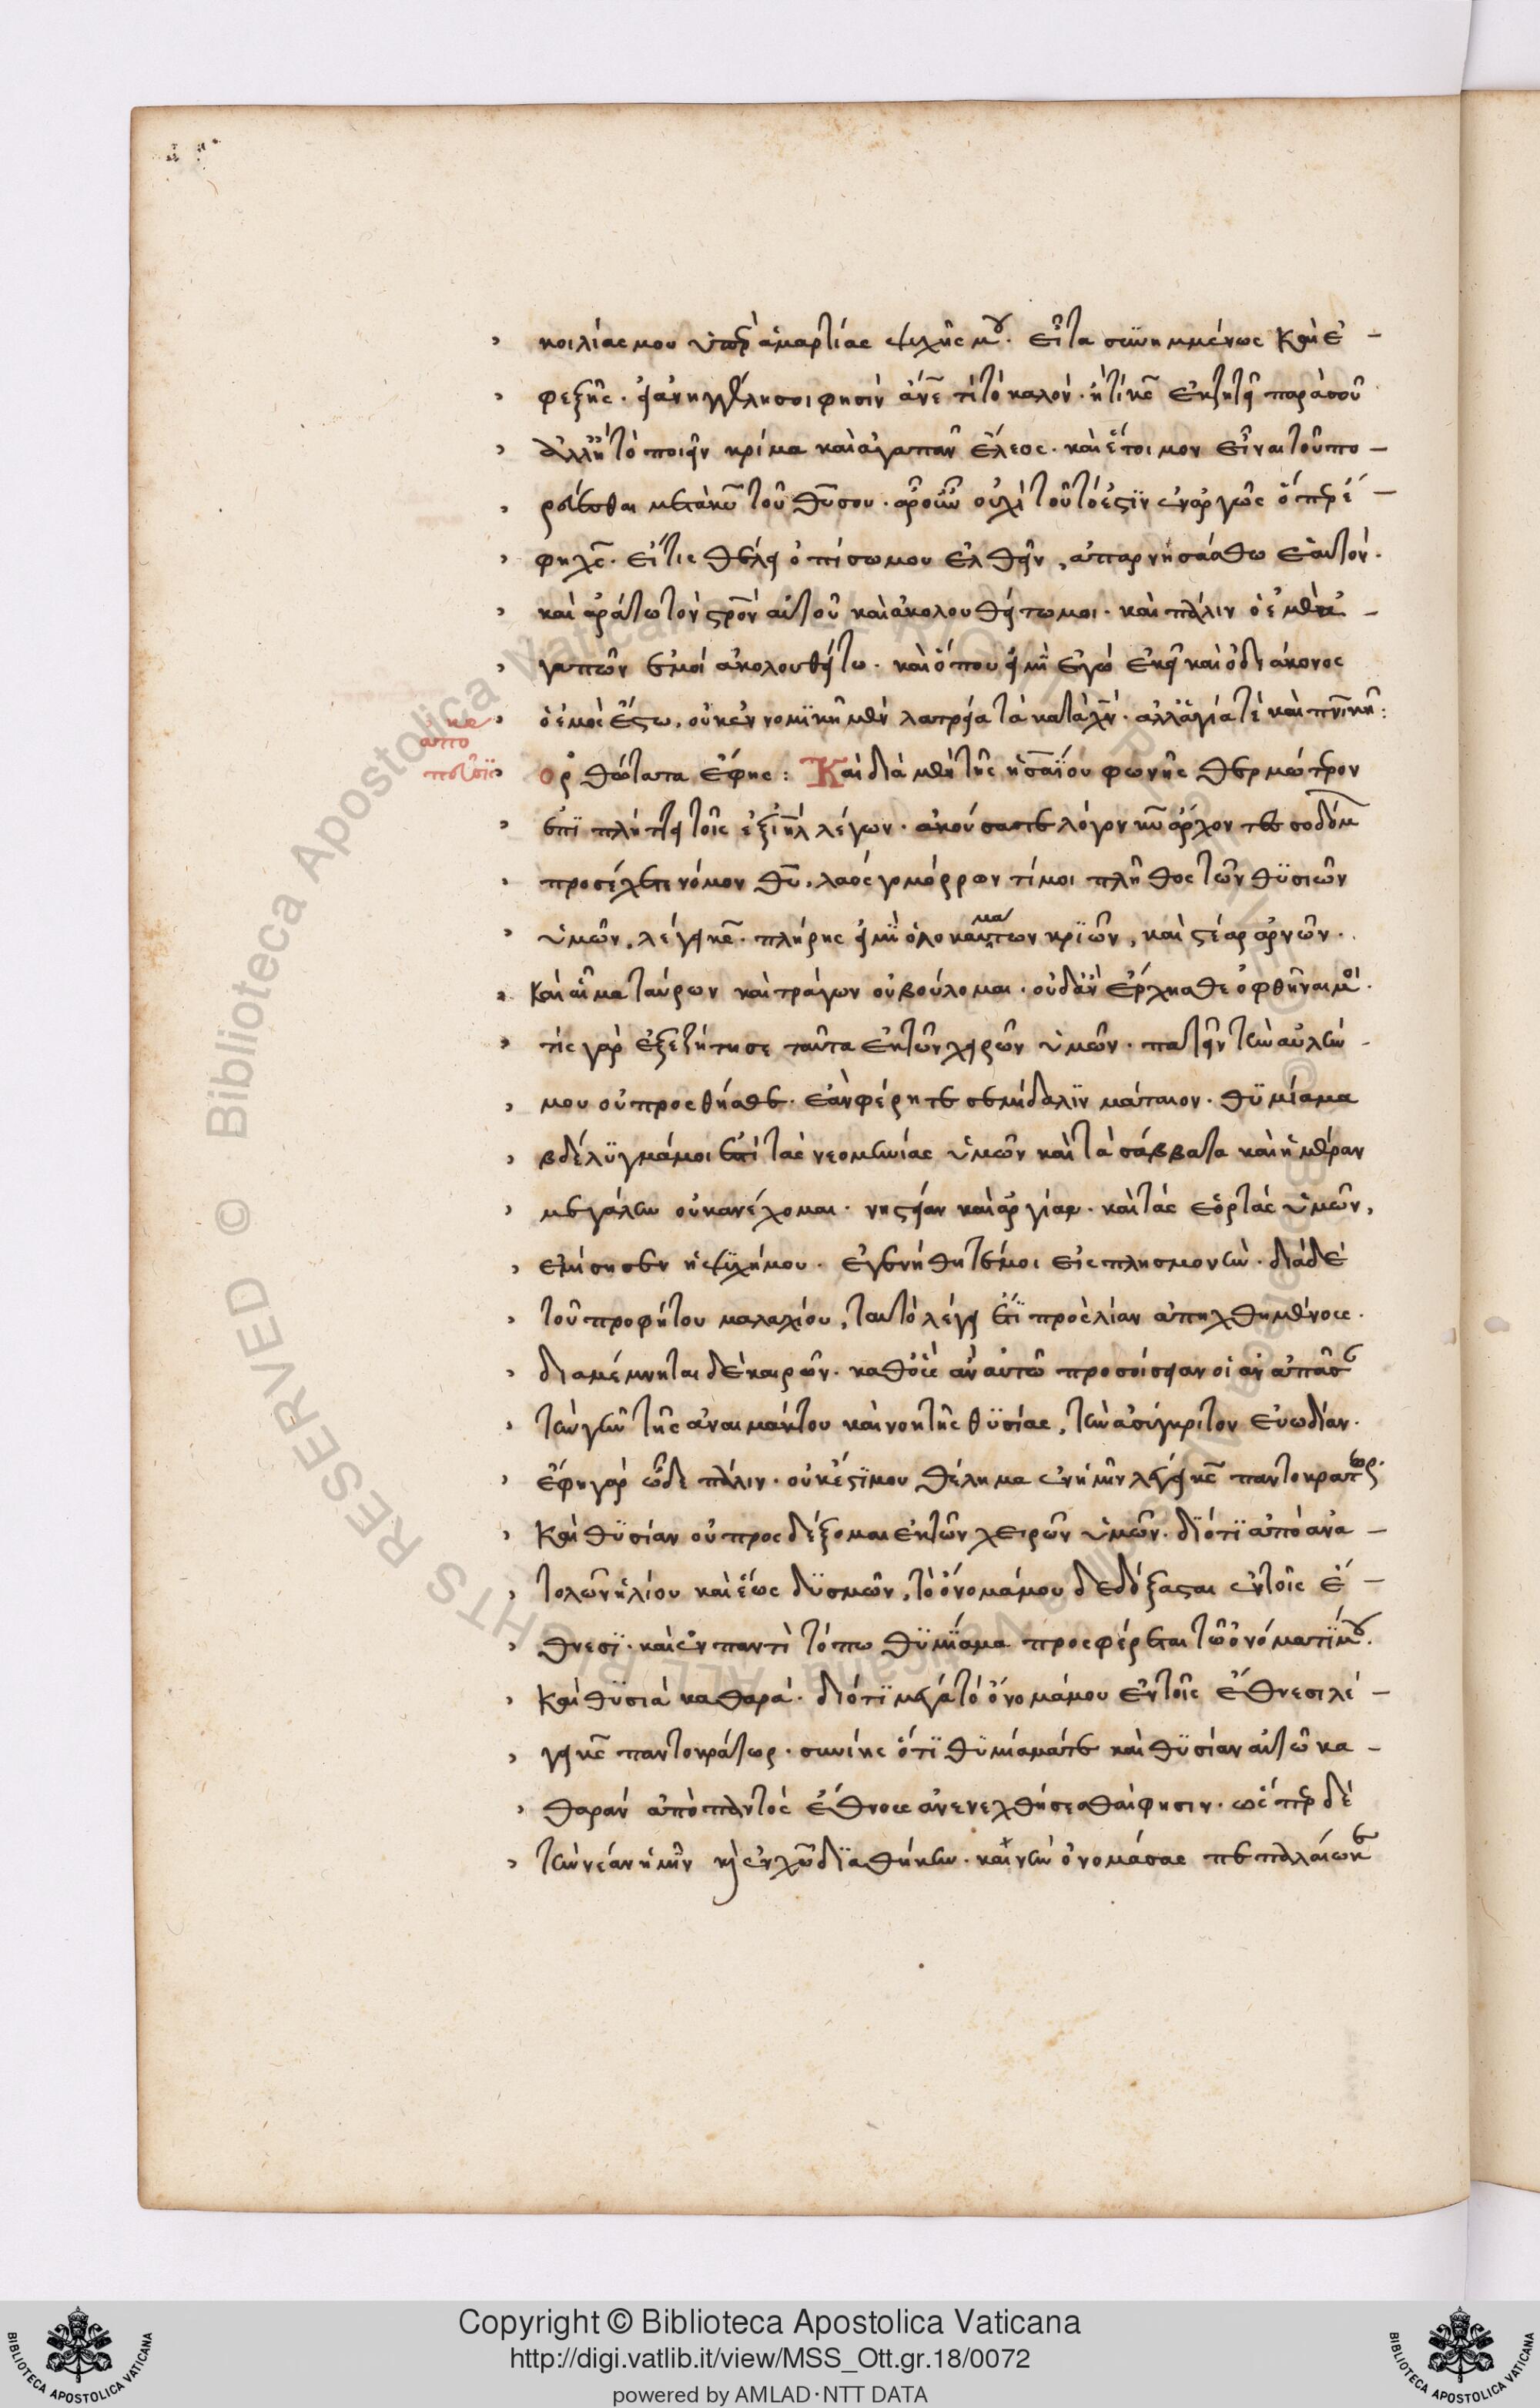 κοιλίας μου ὑπὲρ ἁμαρτίας ψυχῆς μου. εἶτα συνημμένως καὶ ἐ-
φεξῆς. εἰ ἀνηγγέλη σοι φησὶν ἄνε τί τὸ καλόν. ἢ τί κς ἐκζητεῖ παρὰ σοῦ
ἀλλ' ἢ τὸ ποιεῖν κρίμα καὶ ἀγαπᾶν ἔλεος. καὶ ἕτοιμον εἶναι τοῦ πο-
ρεύεσθαι μετὰ κυ τοῦ θυ σου. ἆρ' οὖν οὐχὶ τοῦτό ἐστιν ἐναργῶς ὅπερ ἔ-
φη χς. εἴ τις θέλει ὀπίσω μου ἐλθεῖν, ἀπαρνησάσθω ἑαυτόν.
καὶ ἀράτω τὸν στρον αὐτοῦ καὶ ἀκολουθήτω μοι. καὶ πάλιν ὁ ἐμὲ ἀ-
γαπῶν ἐμοὶ ἀκολουθήτω. καὶ ὅπου εἰμὶ ἐγὼ ἐκεῖ καὶ ὁ διάκονος
ὁ ἐμὸς ἔστω. οὐκ ἐν νομικῇ μὲν λατρείᾳ τὰ κατὰ χν. ἀλλ' ἁγίᾳ τε καὶ πνικῇ:
κε
απο
ὀρθότατα ἔφης: Καὶ διὰ μὲν τῆς ἡσαΐου φωνῆς θερμότερον
ἐπιπλήττει τοῖς ἐξ ιηλ λέγων. ἀκούσατε λόγον κυ ἄρχοντες σοδόμ
προσέχετε νόμον θυ, λαὸς γομόρρων τί μοι πλῆθος τῶν θυσιῶν
ὑμῶν, λέγει κς. πλήρης εἰμὶ ὁλοκαυμάτων κριῶν, καὶ στέαρ ἀρνῶν.
καὶ αἷμα ταύρων καὶ τράγων οὐ βούλομαι. οὐδ' ἂν ἔρχησθε ὀφθῆναί μοι.
τίς γὰρ ἐξεζήτησε ταῦτα ἐκ τῶν χειρῶν ὑμῶν. πατεῖν τὴν αὐλήν
μου οὐ προσθήσεσθε. ἐὰν φέρητε σεμίδαλιν μάταιον. θυμίαμα
βδέλυγμά μοι ἐστὶ τὰς νεομηνίας ὑμῶν καὶ τὰ σάββατα καὶ ἡμέραν
μεγάλην οὐκ ἀνέχομαι. νηστείαν καὶ ἀργίαν. καὶ τὰς ἑορτὰς ὑμῶν,
ἐμίσησεν ἡ ψυχή μου. ἐγενήθητέ μοι εἰς πλησμονήν. διὰ δὲ
τοῦ προφήτου μαλαχίου, ταυτὸ λέγει ἔτι πρὸς λίαν ἀπηχθημένους.
διαμέμνηται δὲ καιρῶν. καθ' οὓς ἂν αὐτῷ προσοίσειαν οἱ ἁπάσης
τὴν γῆν τῆς ἀναιμάκτου καὶ νοητῆς θυσίας, τὴν ἀσύγκριτον εὐωδίαν.
ἔφη γὰρ ὧδε πάλιν. οὐκ ἔστι μου θέλημα ἐν ἡμῖν λέγει κς παντοκράτωρ.
καὶ θυσίαν οὐ προσδέξομαι ἐκ τῶν χειρῶν ὑμῶν. διότι ἀπὸ ἀνα-
τολῶν ἡλίου καὶ ἕως δυσμῶν, τὸ ὄνομά μου δεδόξασται ἐν τοῖς ἔ-
θνεσι. καὶ ἐν παντὶ τόπῳ θυμίαμα προσφέρεται τῷ ὀνόματί μου.
καὶ θυσία καθαρά. διότι μέγα τὸ ὄνομά μου ἐν τοῖς ἔθνεσι λέ-
γει κς παντοκράτωρ. συνίης ὅτι θυμίαμά τε καὶ θυσίαν αὐτῷ κα-
θαρὰν ἀπὸ παντὸς ἔθνους ἀνενεχθήσεσθαί φησιν. ὥσπερ δὲ
τὴν νέαν ἡμῖν καὶ ἐν χω διαθήκην. καινὴν ὀνομάσας πεπαλαίωκε
Copyright © Biblioteca Apostolica Vaticana
http://digi.vatlib.it/view/MSS_Ott.gr.18/0072
powered by AMLAD·NTT DATA